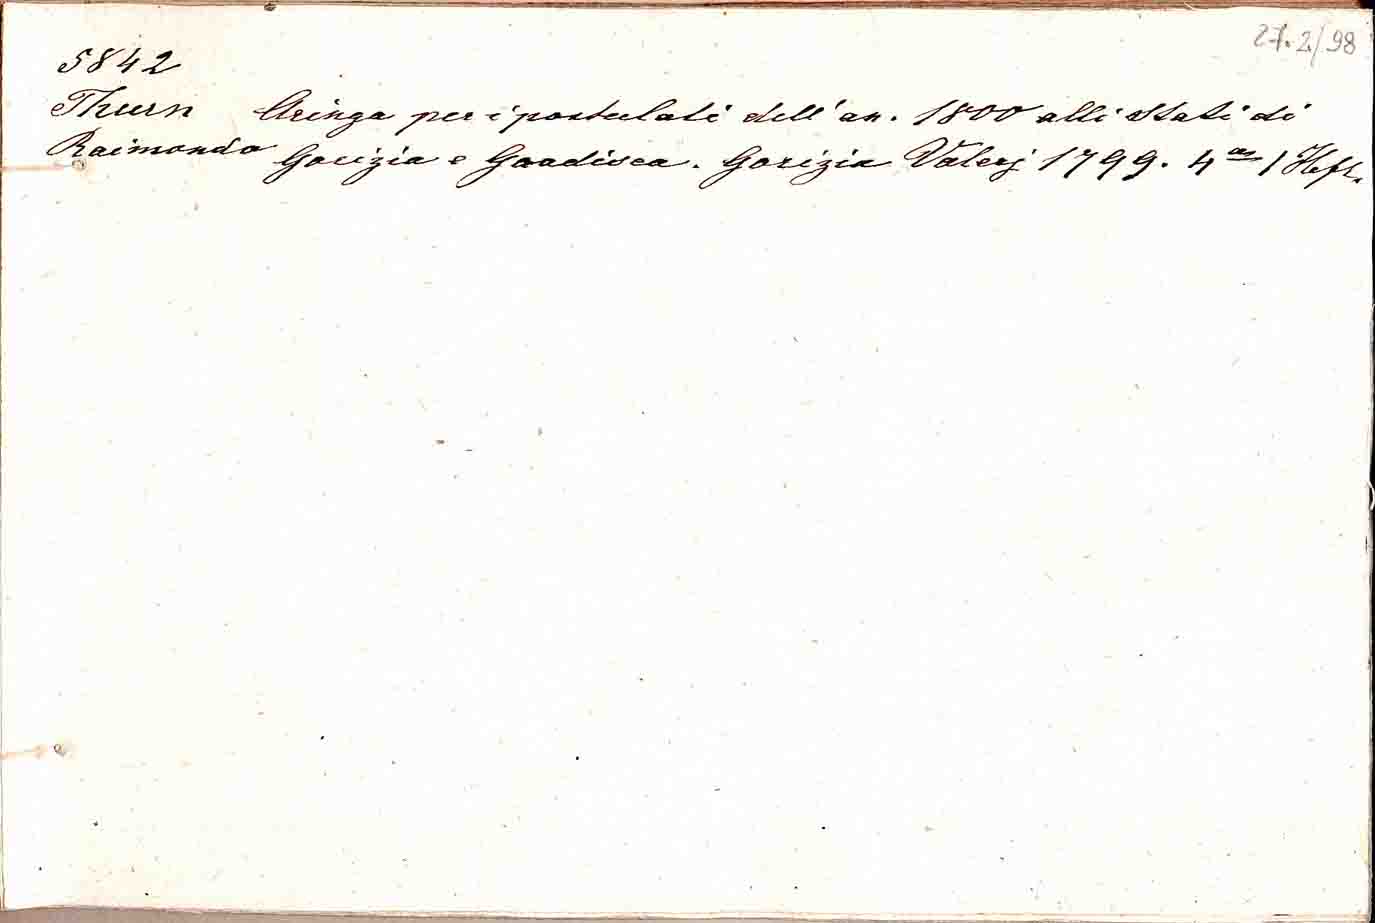 27.2/98
5842
Thurn Aringa per i postulati dell' an. 1800 alli Stati di
Raimondo Gorizia e Gradisca. Gorizia Valerj 1799. 4º 1 Heft.